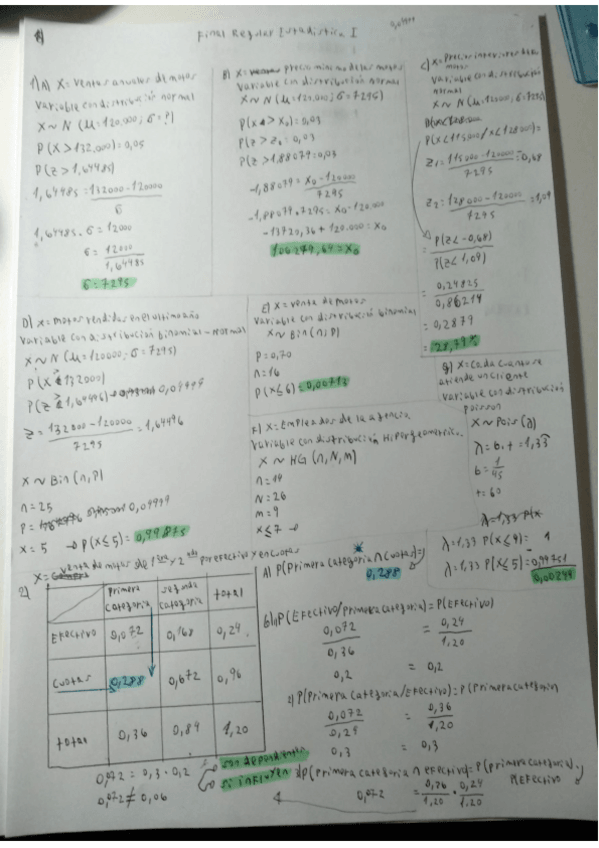 Final Regular Estadística I
1) A) X = ventas anuales de motos
Variable con distribución normal
X ~ N (μ = 120.000; σ = ?)
P(X > 132.000) = 0,05
P(Z > 1,64485)
1,64485 = 132000 - 120000
σ
1,64485 . σ = 12000
σ = 12000
1,64485
σ = 7295
B) X = precio mínimo de las motos
Variable con distribución normal
X ~ N (μ = 120.000; σ = 7295)
P(X > X₀) = 0,03
P(Z > Z₀ = 0,03
P(Z > 1,88079 = 0,03
-1,88079 = X₀ - 120000
7295
-1,88079 . 7295 = X₀ - 120.000
-13720,36 + 120.000 = X₀
106279,64 = X₀
C) X = Precio
Variable con distribución
normal
X ~ N (μ = 120000; σ = 7295)
P(X < 115000 / X < 128000) =
Z₁ = 115000 - 120000 = -0,68
7295
Z₂ = 128000 - 120000 = 1,09
7295
P(Z < -0,68)
P(Z < 1,09)
= 0,24825
0,86214
= 0,2879
= 28,79%
D) X = motos vendidas en el último año
Variable con distribución binomial - normal
X ~ N (μ = 120000; σ = 7295)
P(X > 132000)
P(Z > 1,64496) 0,04999
Z = 132000 - 120000 = 1,64496
7295
X ~ Bin (n, P)
n = 25
P = 0,04999
X = 5 → P(X ≤ 5) = 0,99875
E) X = venta de motos
Variable con distribución binomial
X ~ Bin (n; P)
P = 0,70
n = 16
P(X ≤ 6) = 0,00713
F) X = Empleados de la agencia
Variable con distribución Hipergeométrica
X ~ HG (n, N, M)
n = 14
N = 26
m = 9
X ≤ 7 →
g) X = Cada cuanto se
atiende un cliente
Variable con distribución
poisson
X ~ Pois (λ)
λ = b . t = 1,33
b = 1
45
t = 60
λ = 1,33 P(X ≤ 4) = 1
λ = 1,33 P(X ≤ 5) = 0,99751
0,00249
X = venta de motos de 1era y 2da por efectivo y en cuotas
2)
primera categoria segunda categoria total
Efectivo 0,072 0,168 0,24
Cuotas 0,288 0,672 0,96
total 0,36 0,84 1,20
A) P(Primera categoria ∩ Cuotas) =
0,288
b) P(Efectivo/primera categoria) = P(Efectivo)
0,072 = 0,24
0,36 1,20
0,2 = 0,2
P(Primera categoria/Efectivo) = P(Primera categoria)
0,072 = 0,36
1,20
0,3 = 0,3
P(primera categoria ∩ efectivo) = P(primera categoria) .
P(Efectivo
0,072 = 0,36 . 0,24
1,20 1,20
0,072 = 0,3 . 0,2
0,072 ≠ 0,06
son dependientes
si influyen